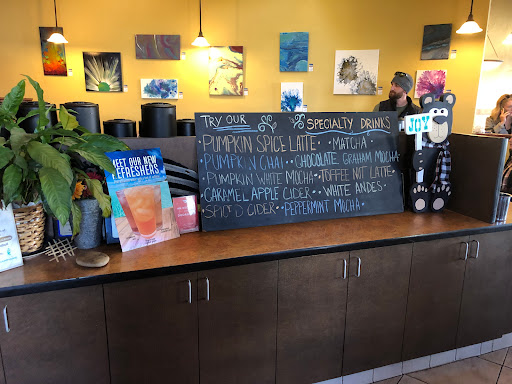 TRY OUR SPECIALTY DRINKS
PUMPKIN SPICE LATTE • MATCHA •
PUMPKIN CHAI • CHOCOLATE GRAHAM MOCHA
PUMPKIN WHITE MOCHA • TOFFEE NUT LATTE
CARAMEL APPLE CIDER • WHITE ANDES •
SPIC D CIDER • PEPPERMINT MOCHA •
MEET OUR NEW
REFRESHERS
JOY